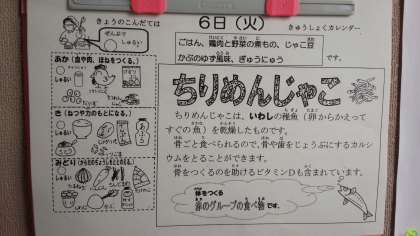 きょうのこんだては
ぜんぶで
しゅるい
6日(火)
きゅうしょくカレンダー
ごはん、鶏肉と野菜の煮もの、じゃこ豆
かぶのゆず風味、ぎゅうにゅう
です。
あか(血や肉、ほねをつくる。)
しゅるい
き(ねつや力のもとになる。)
しゅるい
みどり
しゅるい
ちりめんじゃこ
ちりめんじゃこは、いわしの稚魚(卵からかえって
すぐの魚)を乾燥したものです。
骨ごと食べられるので、骨や歯をじょうぶにするカルシ
ウムをとることができます。
骨をつくるのを助けるビタミンDも含まれています。
体をつくる
赤のグループの食べ物です。